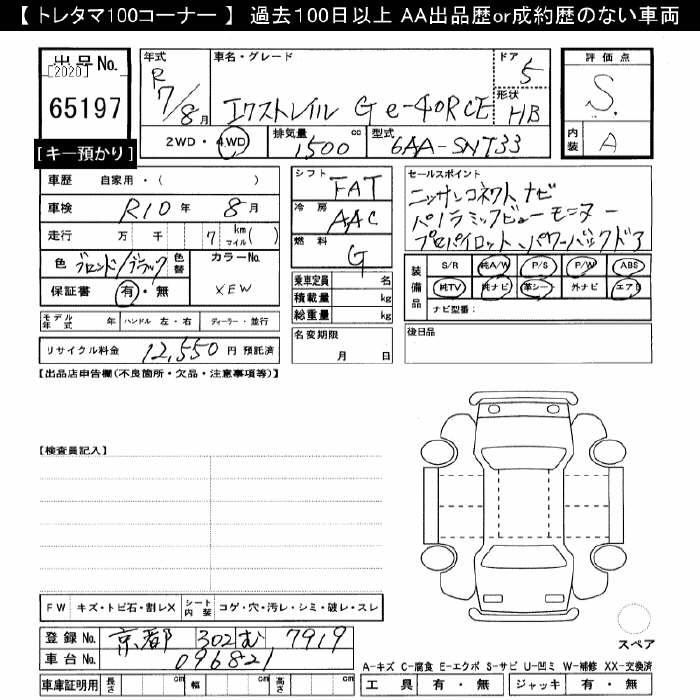 【 トレタマ100コーナー 】 過去100日以上 AA出品歴or成約歴のない車両
出品No.
[2020]
65197
[キー預かり]
年式 R7/8月
車名・グレード エクストレイル G e-4ORCE
ドア 5
形状 HB
評価点 S
内装 A
2WD・4WD
排気量 1500 cc
型式 6AA-SNT33
車歴 自家用・( )
車検 R10年 8月
走行 万 千 7 km マイル( )
色 ブロンド/ブラック 色替
カラーNo. XEW
保証書 有・無
シフト FAT
冷房 AAC
燃料 G
乗車定員 名
積載量 kg
総重量 kg
セールスポイント
ニッサンコネクト ナビ
パノラミックビューモニター
プロパイロット、パワーバックドア
装備品
S/R 純A/W P/S P/W ABS
純TV 純ナビ 革シート 外ナビ エアB
ナビ型番:
モデル年式 年 ハンドル 左・右 ディーラー・並行
名変期限 月 日
後日品
リサイクル料金 12,550 円 預託済
【出品店申告欄(不良箇所・欠品・注意事項等)】
【検査員記入】
FW キズ・トビ石・割レX シート内装 コゲ・穴・汚レ・シミ・破レ・スレ
登録No. 京都 302 む 7919
車台No. 096821
スペア
A-キズ C-腐食 E-エクボ S-サビ U-凹ミ W-補修 XX-交換済
車庫証明用 長さ cm 幅 cm 高さ cm
工具 有・無 ジャッキ 有・無